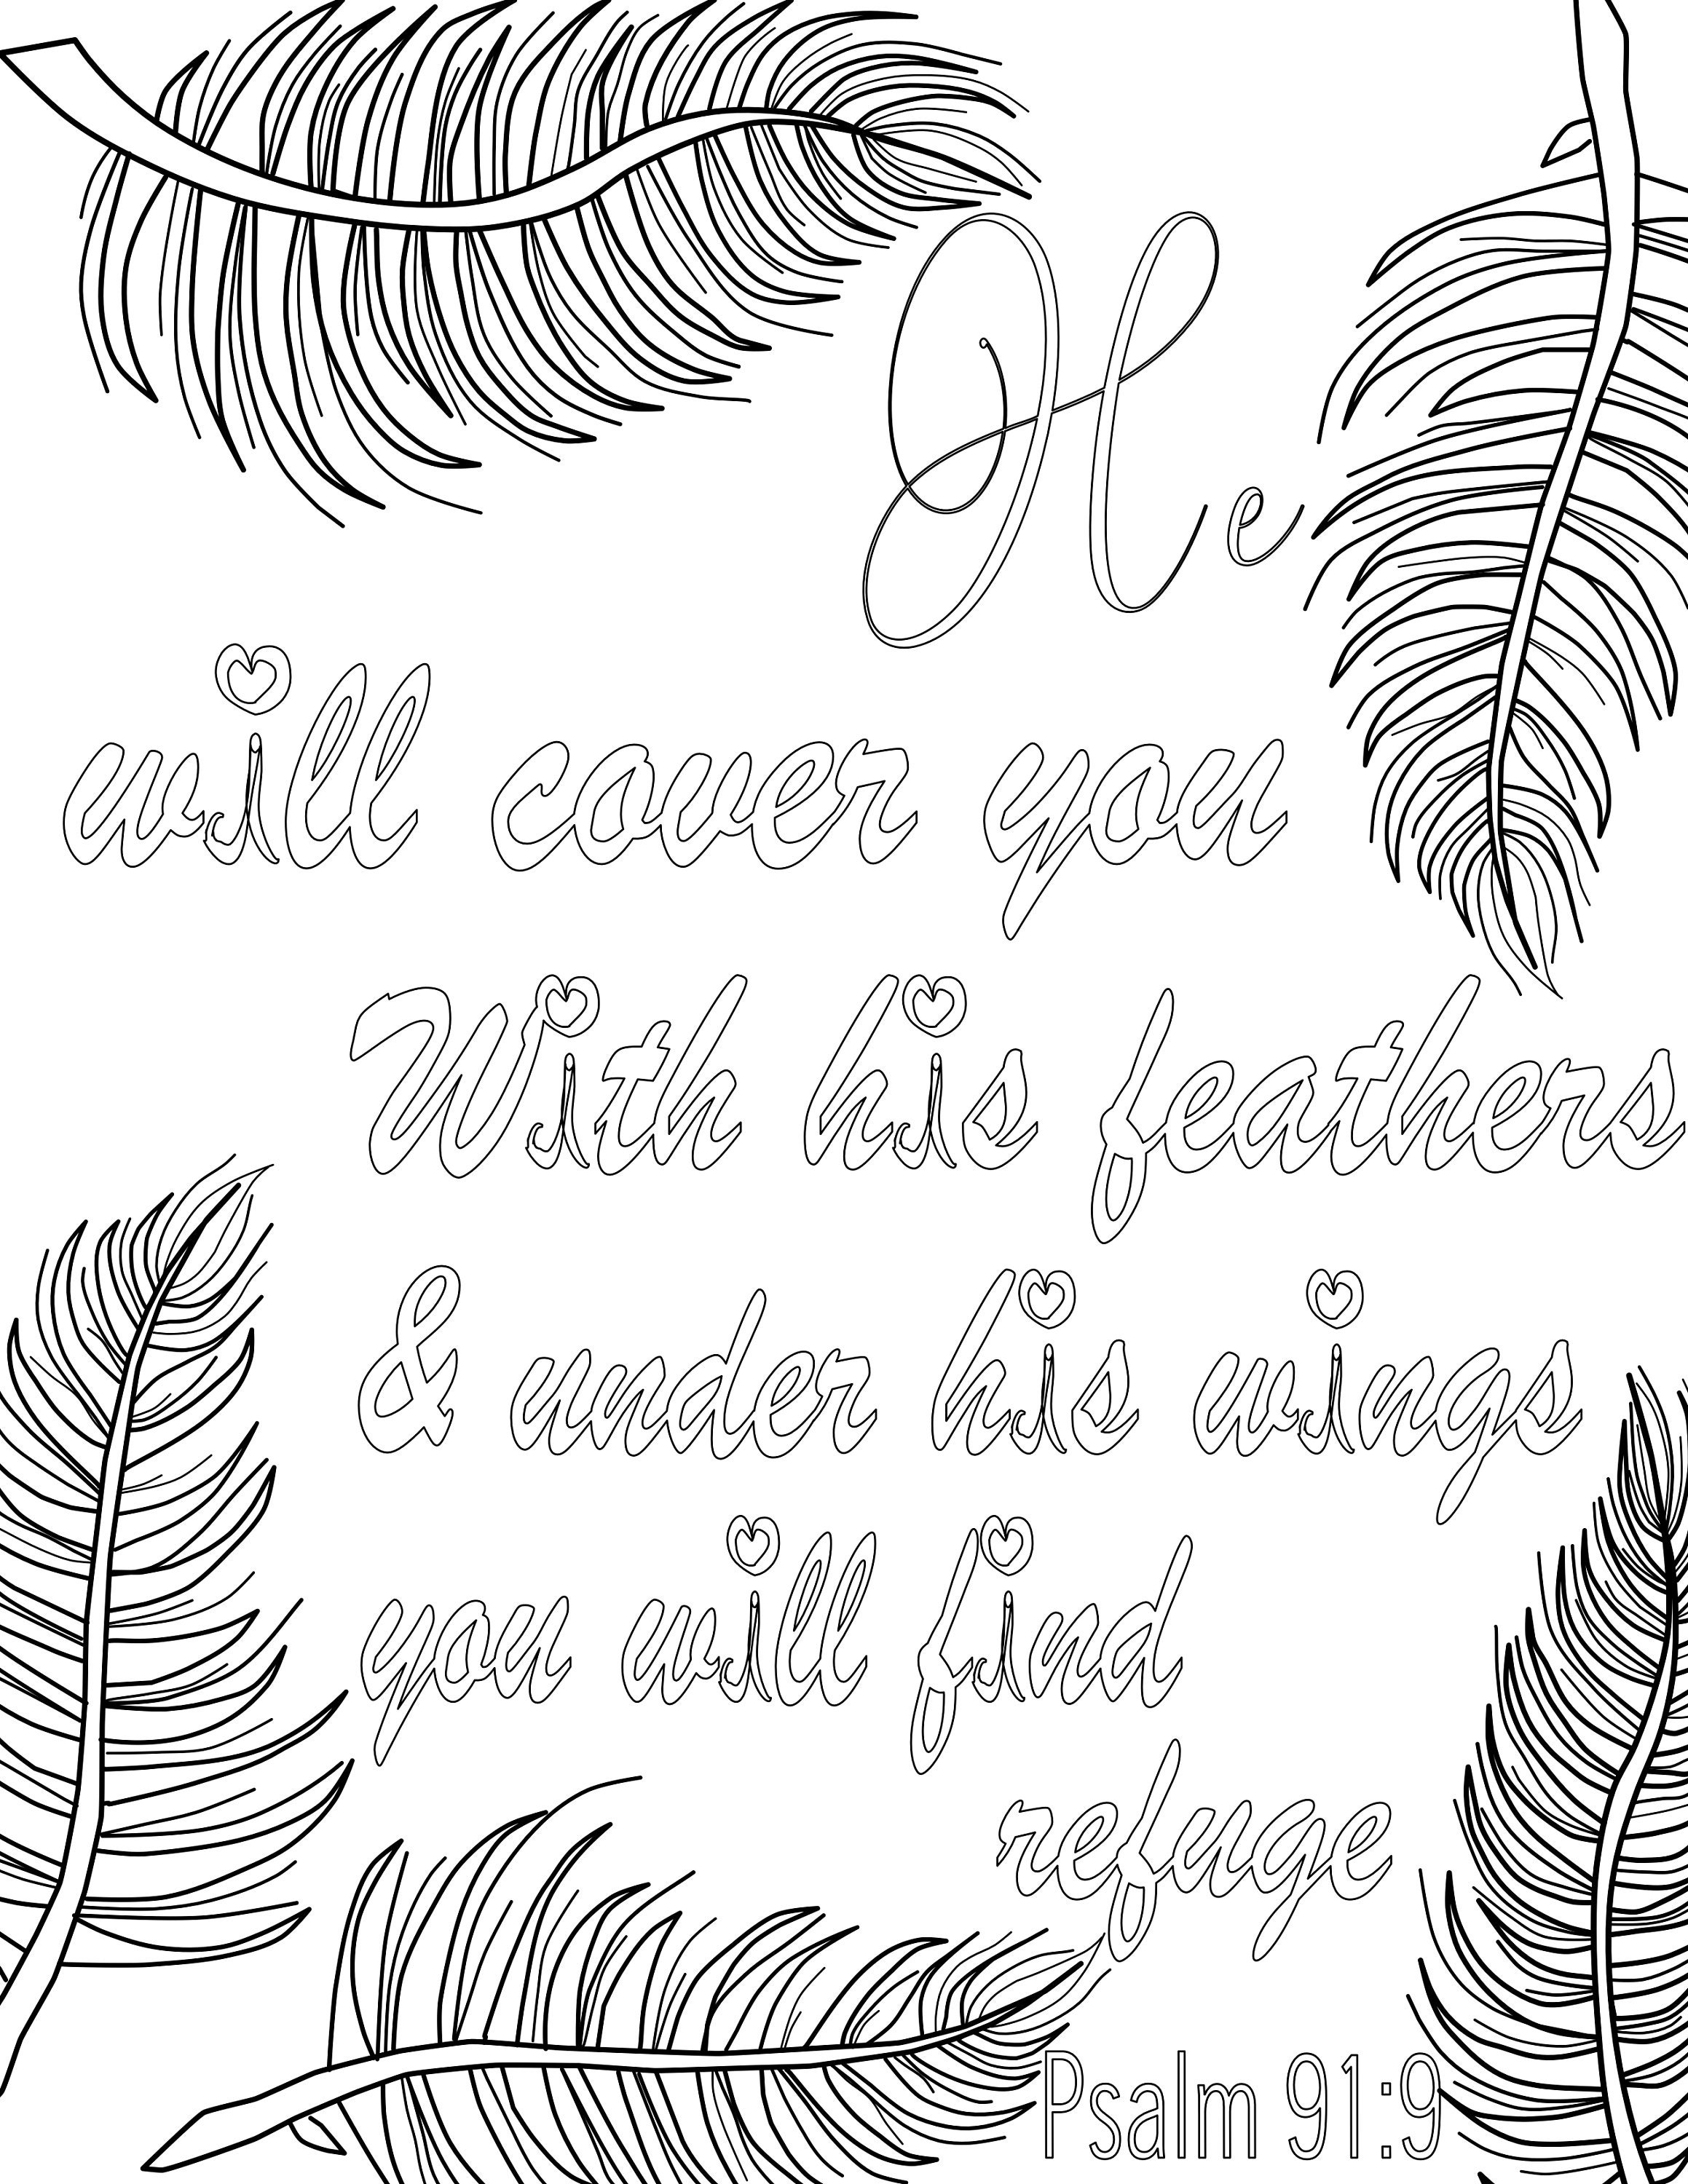 He
will cover you
With his feathers
& under his wings
you will find
refuge
Psalm 91:9